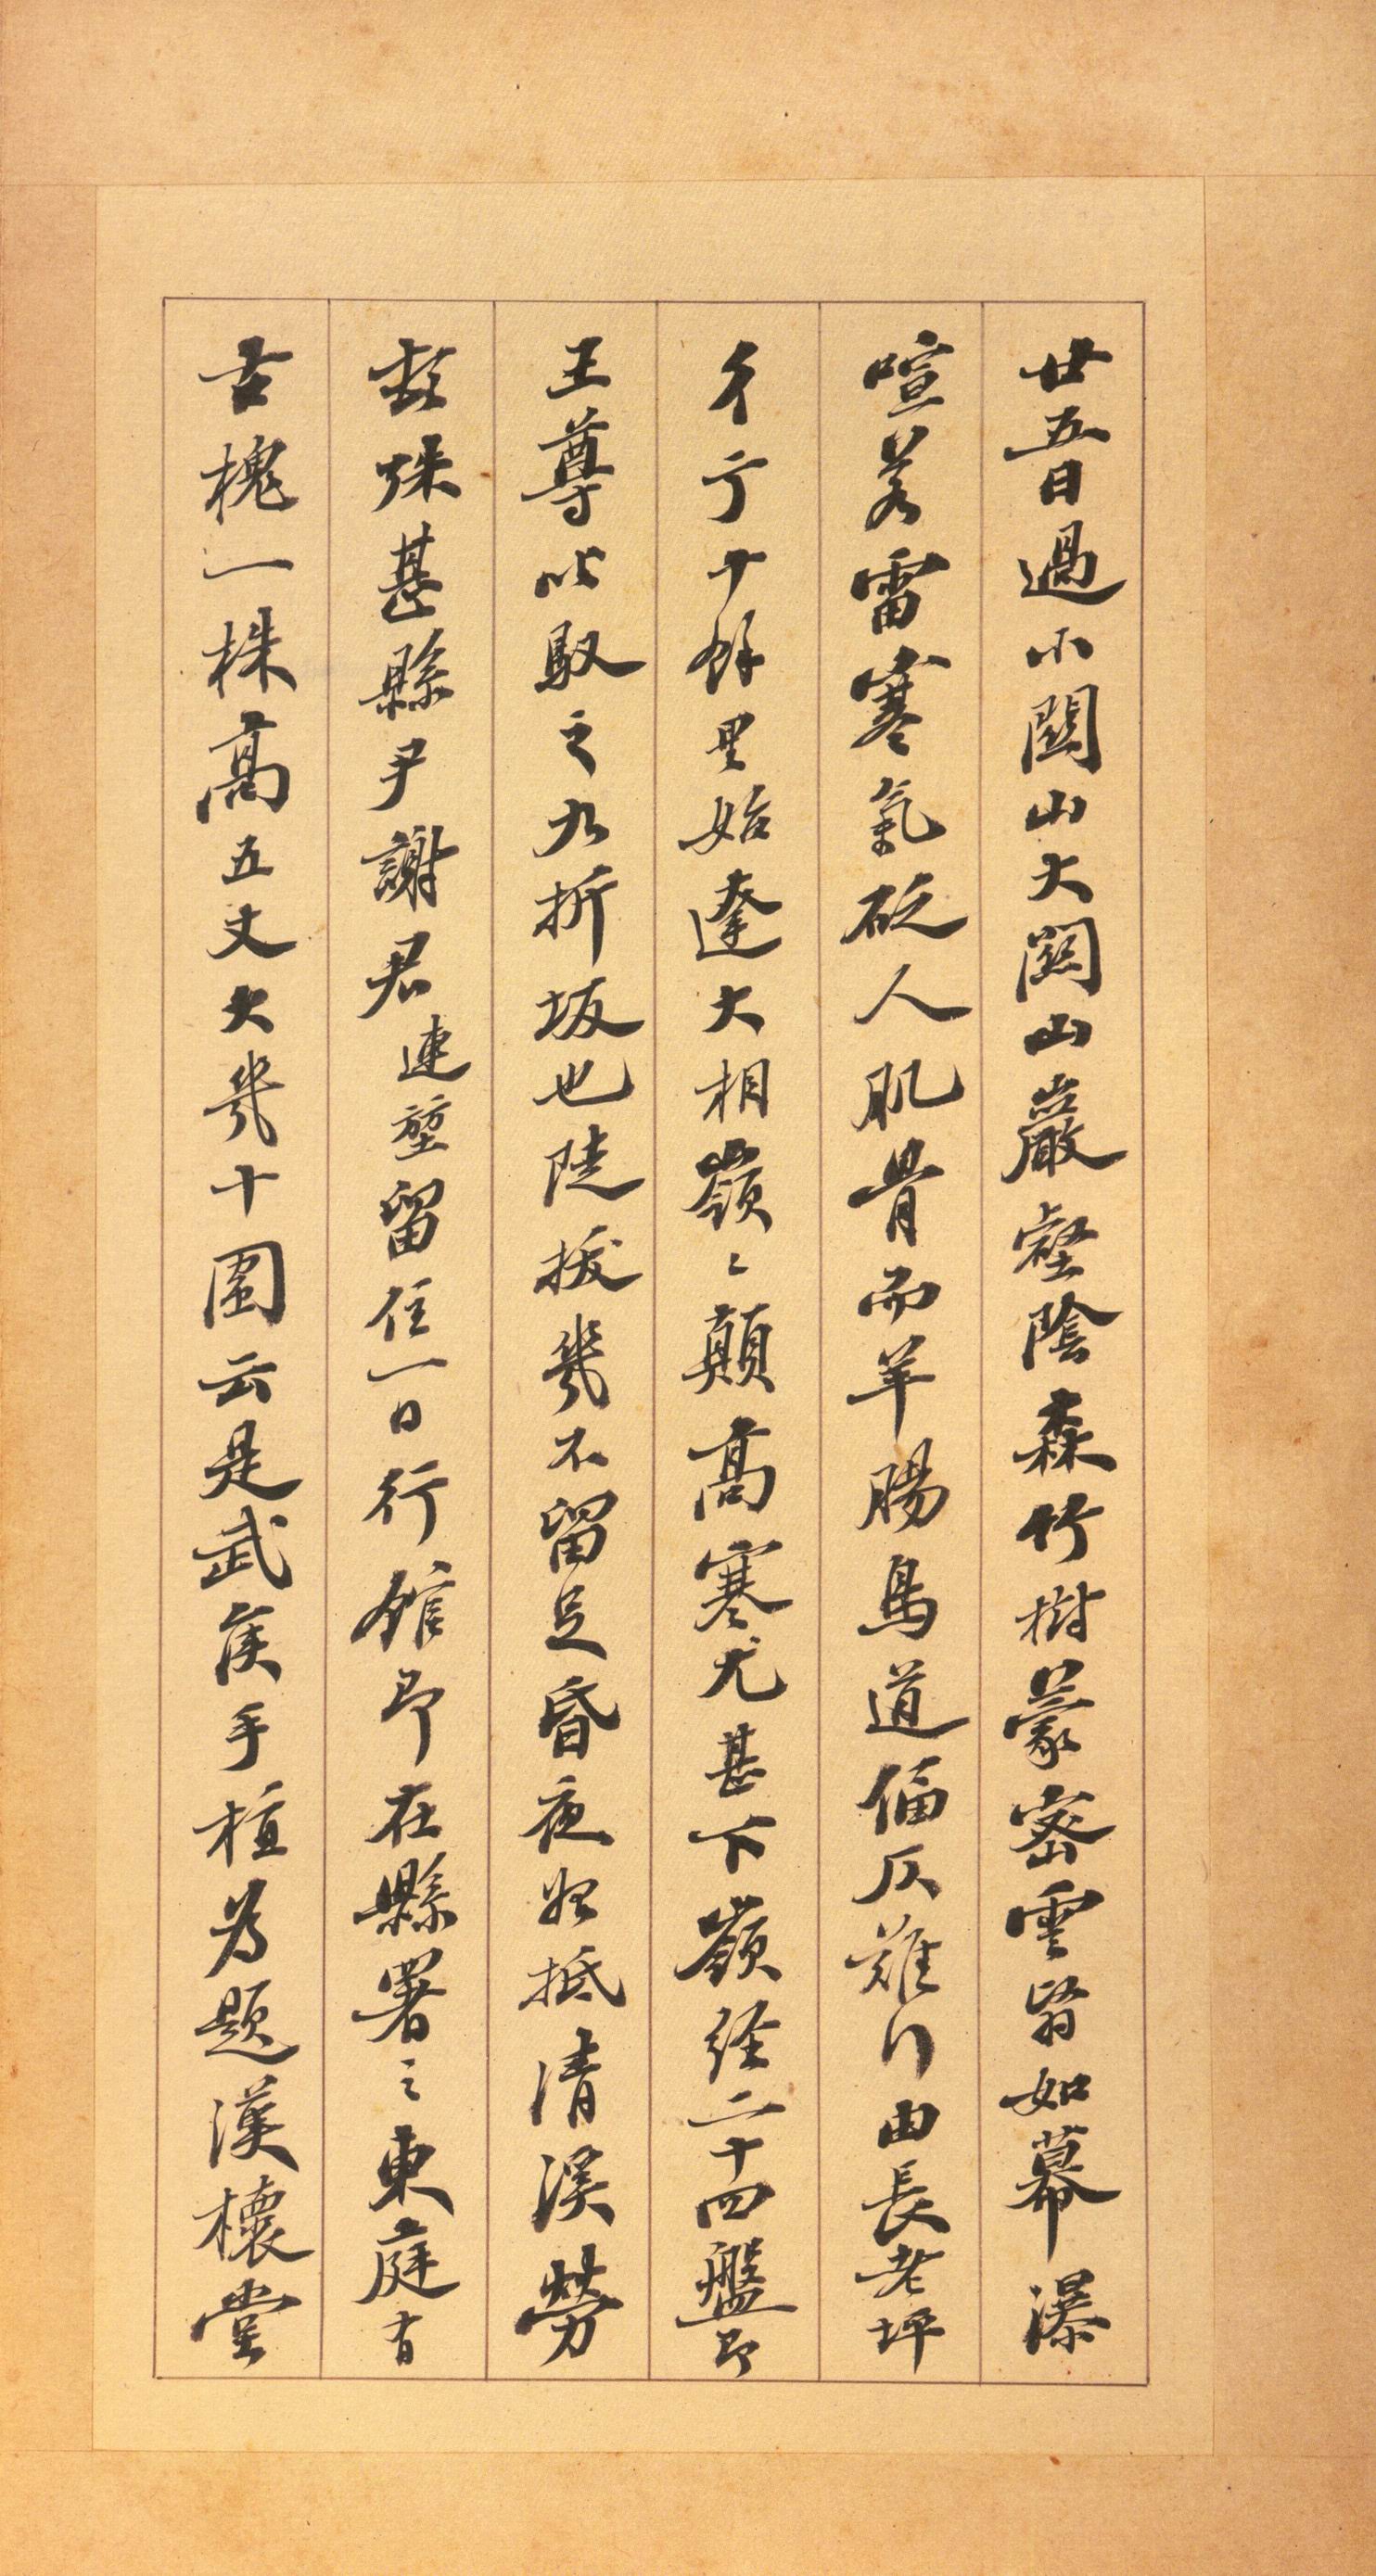 廿五日過小關山大關山巖壑陰森竹樹蒙密雲翳如幕瀑
喧若雷寒氣砭人肌骨而羊腸鳥道偪仄難行由長老坪
彳亍十餘里始達大相嶺〻顛高寒尤甚下嶺經二十四盤即
王尊叱馭之九折坂也陡拔幾不留足昏夜始抵清溪勞
殊甚縣尹謝君連堃留住一日行館即在縣署之東庭有
古槐一株高五丈大幾十圍云是武侯手植為題漢櫰堂